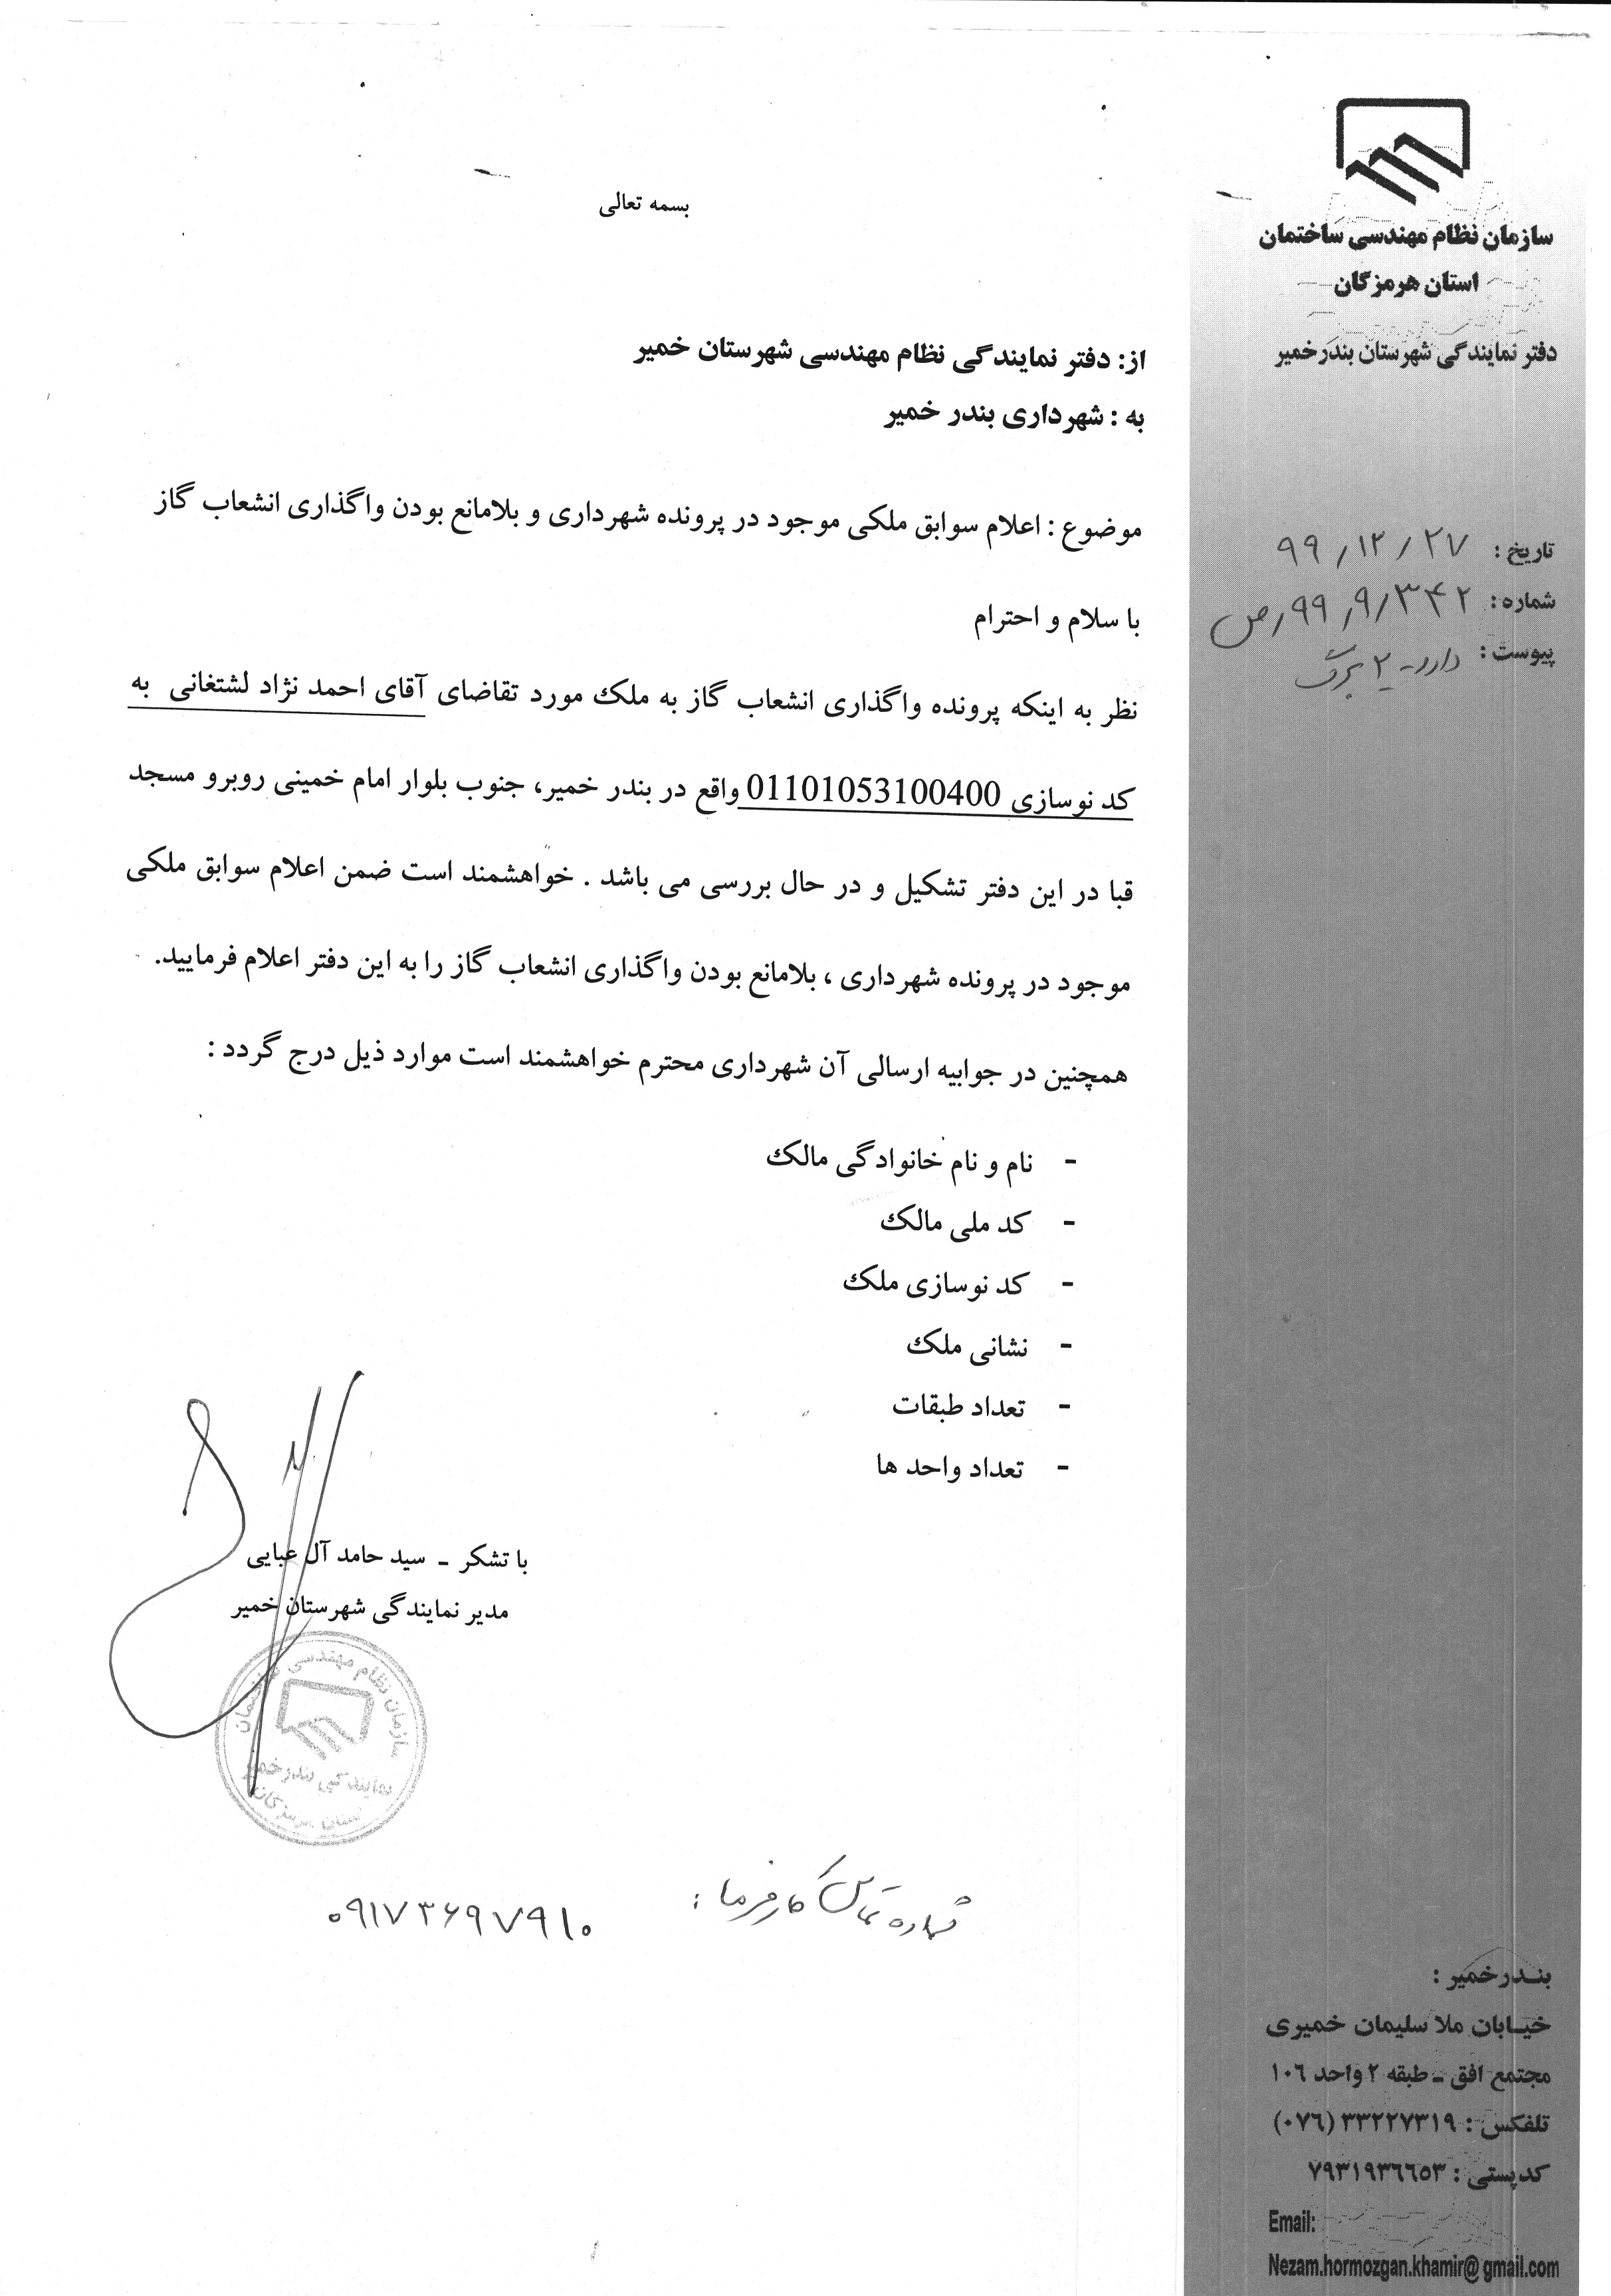 سازمان نظام مهندسی ساختمان
استان هرمزگان
دفتر نمایندگی شهرستان بندرخمیر
تاریخ : ۹۹/۱۲/۲۷
شماره : ۹۹/۹/۳۴۲/ص
پیوست : دارد - ۲ برگ
بسمه تعالی
از: دفتر نمایندگی نظام مهندسی شهرستان خمیر
به : شهرداری بندر خمیر
موضوع : اعلام سوابق ملکی موجود در پرونده شهرداری و بلامانع بودن واگذاری انشعاب گاز
با سلام و احترام
نظر به اینکه پرونده واگذاری انشعاب گاز به ملک مورد تقاضای آقای احمد نژاد لشتغانی به
کد نوسازی 01101053100400 واقع در بندر خمیر، جنوب بلوار امام خمینی روبرو مسجد
قبا در این دفتر تشکیل و در حال بررسی می باشد . خواهشمند است ضمن اعلام سوابق ملکی
موجود در پرونده شهرداری ، بلامانع بودن واگذاری انشعاب گاز را به این دفتر اعلام فرمایید.
همچنین در جوابیه ارسالی آن شهرداری محترم خواهشمند است موارد ذیل درج گردد :
- نام و نام خانوادگی مالک
- کد ملی مالک
- کد نوسازی ملک
- نشانی ملک
- تعداد طبقات
- تعداد واحد ها
با تشکر - سید حامد آل عبایی
مدیر نمایندگی شهرستان خمیر
سازمان نظام مهندسی ساختمان
نمایندگی بندرخمیر
استان هرمزگان
شماره تماس کارفرما : ۰۹۱۷۳۶۹۷۹۱۰
بندرخمیر :
خیابان ملا سلیمان خمیری
مجتمع افق - طبقه ۲ واحد ۱۰۶
تلفکس : ۳۳۲۲۷۳۱۹ (۰۷۶)
کدپستی : ۷۹۳۱۹۳۶۶۵۳
Email:
Nezam.hormozgan.khamir@gmail.com